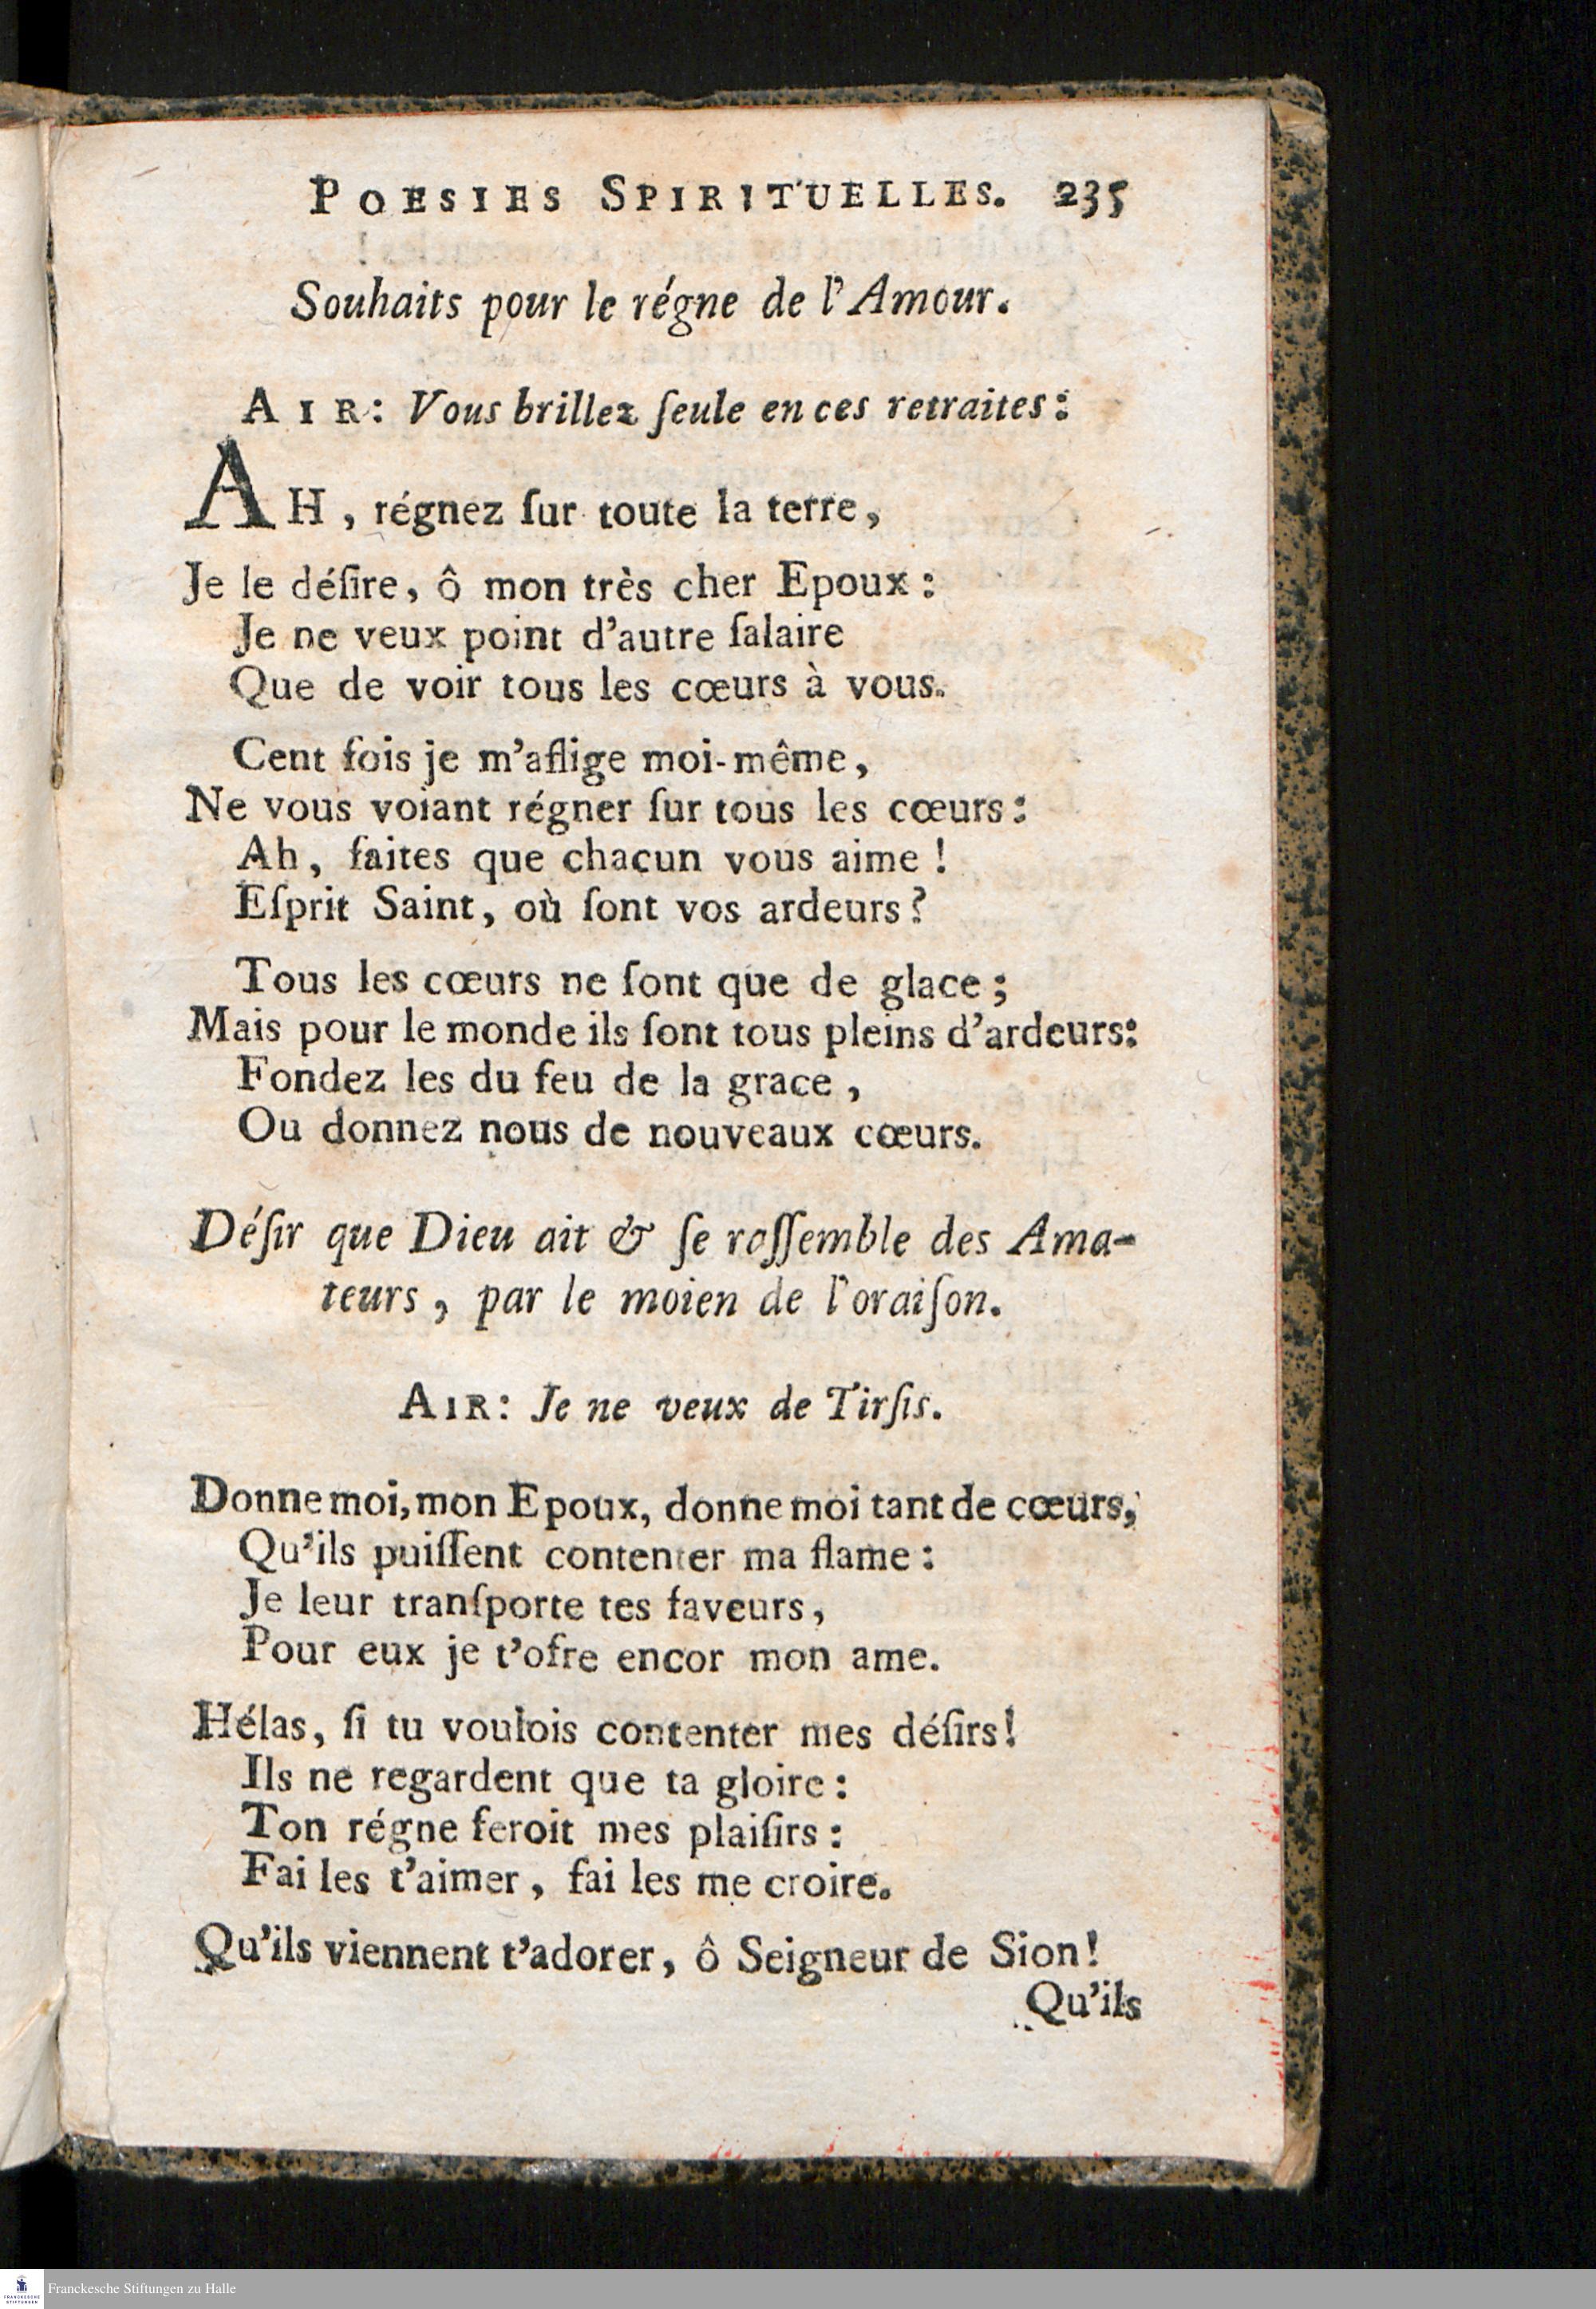 POESIES SPIRITUELLES. 235
Souhaits pour le régne de l'Amour.
AIR: Vous brillez ſeule en ces retraites:
AH, régnez ſur toute la terre,
Je le déſire, ô mon très cher Epoux:
Je ne veux point d'autre ſalaire
Que de voir tous les cœurs à vous.
Cent fois je m'aflige moi-même,
Ne vous voiant régner ſur tous les cœurs:
Ah, faites que chacun vous aime!
Eſprit Saint, où ſont vos ardeurs?
Tous les cœurs ne ſont que de glace;
Mais pour le monde ils ſont tous pleins d'ardeurs:
Fondez les du feu de la grace,
Ou donnez nous de nouveaux cœurs.
Déſir que Dieu ait & ſe roſſemble des Ama-
teurs, par le moien de l'oraiſon.
AIR: Je ne veux de Tirſis.
Donne moi, mon Epoux, donne moi tant de cœurs,
Qu'ils puiſſent contenter ma flame:
Je leur tranſporte tes faveurs,
Pour eux je t'ofre encor mon ame.
Hélas, ſi tu voulois contenter mes déſirs!
Ils ne regardent que ta gloire:
Ton régne feroit mes plaiſirs:
Fai les t'aimer, fai les me croire.
Qu'ils viennent t'adorer, ô Seigneur de Sion!
Qu'ils
Franckesche Stiftungen zu Halle
FRANCKESCHE
STIFTUNGEN